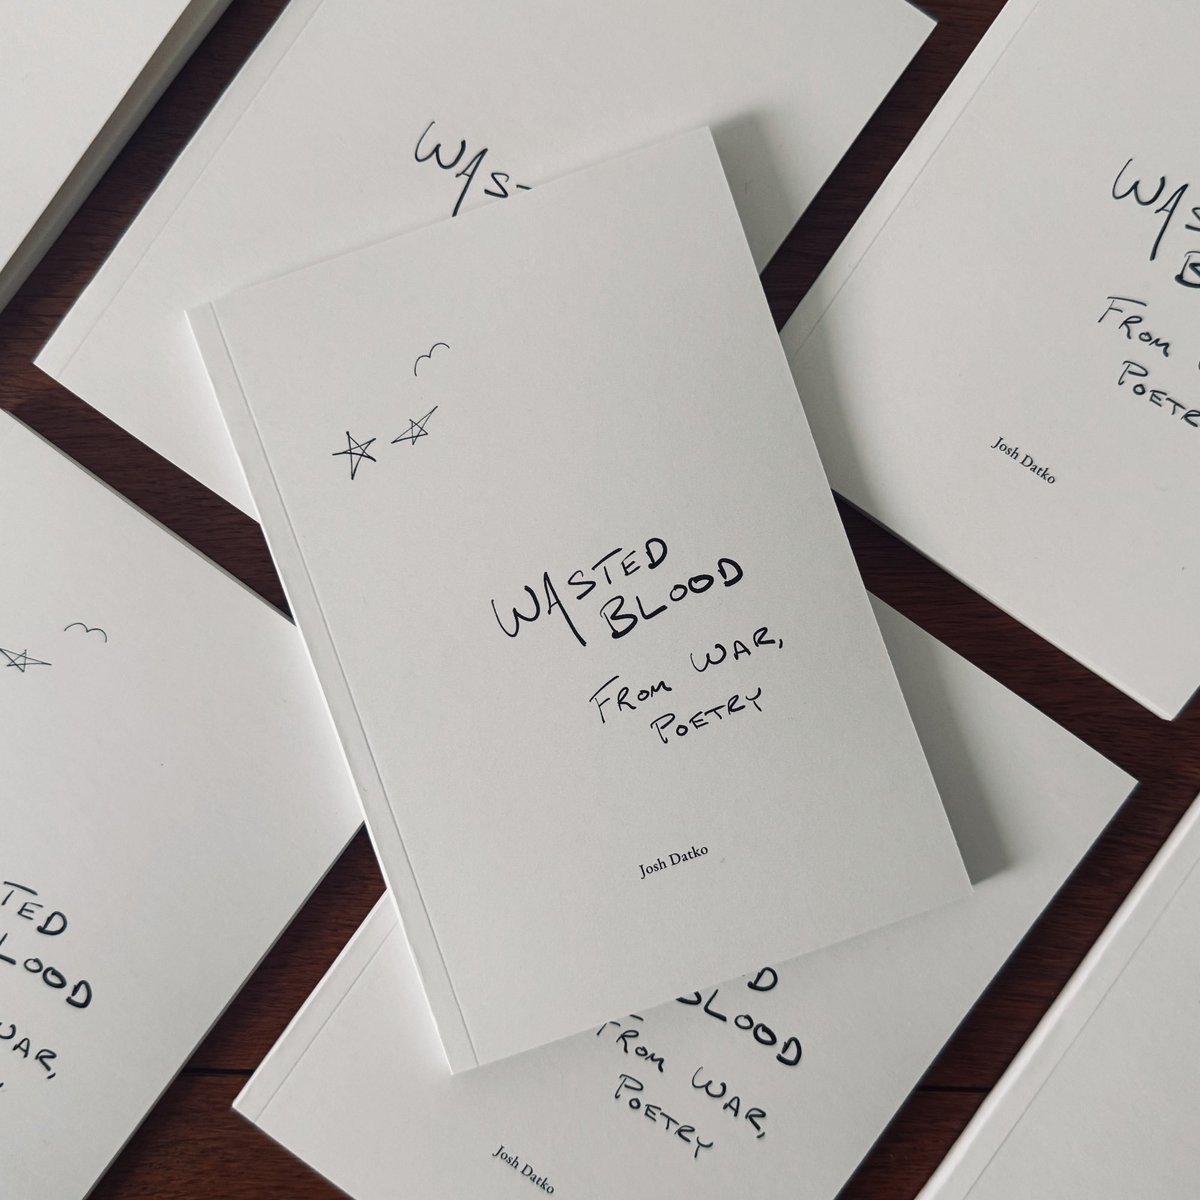 WAST
WASTED
BLOOD
FROM WAR,
POETRY
Josh Datko
WAS
B
FROM
POETR
Josh Datko
TED
LOOD
WAR,
D
BLOOD
FROM WAR,
POETRY
Josh Datko